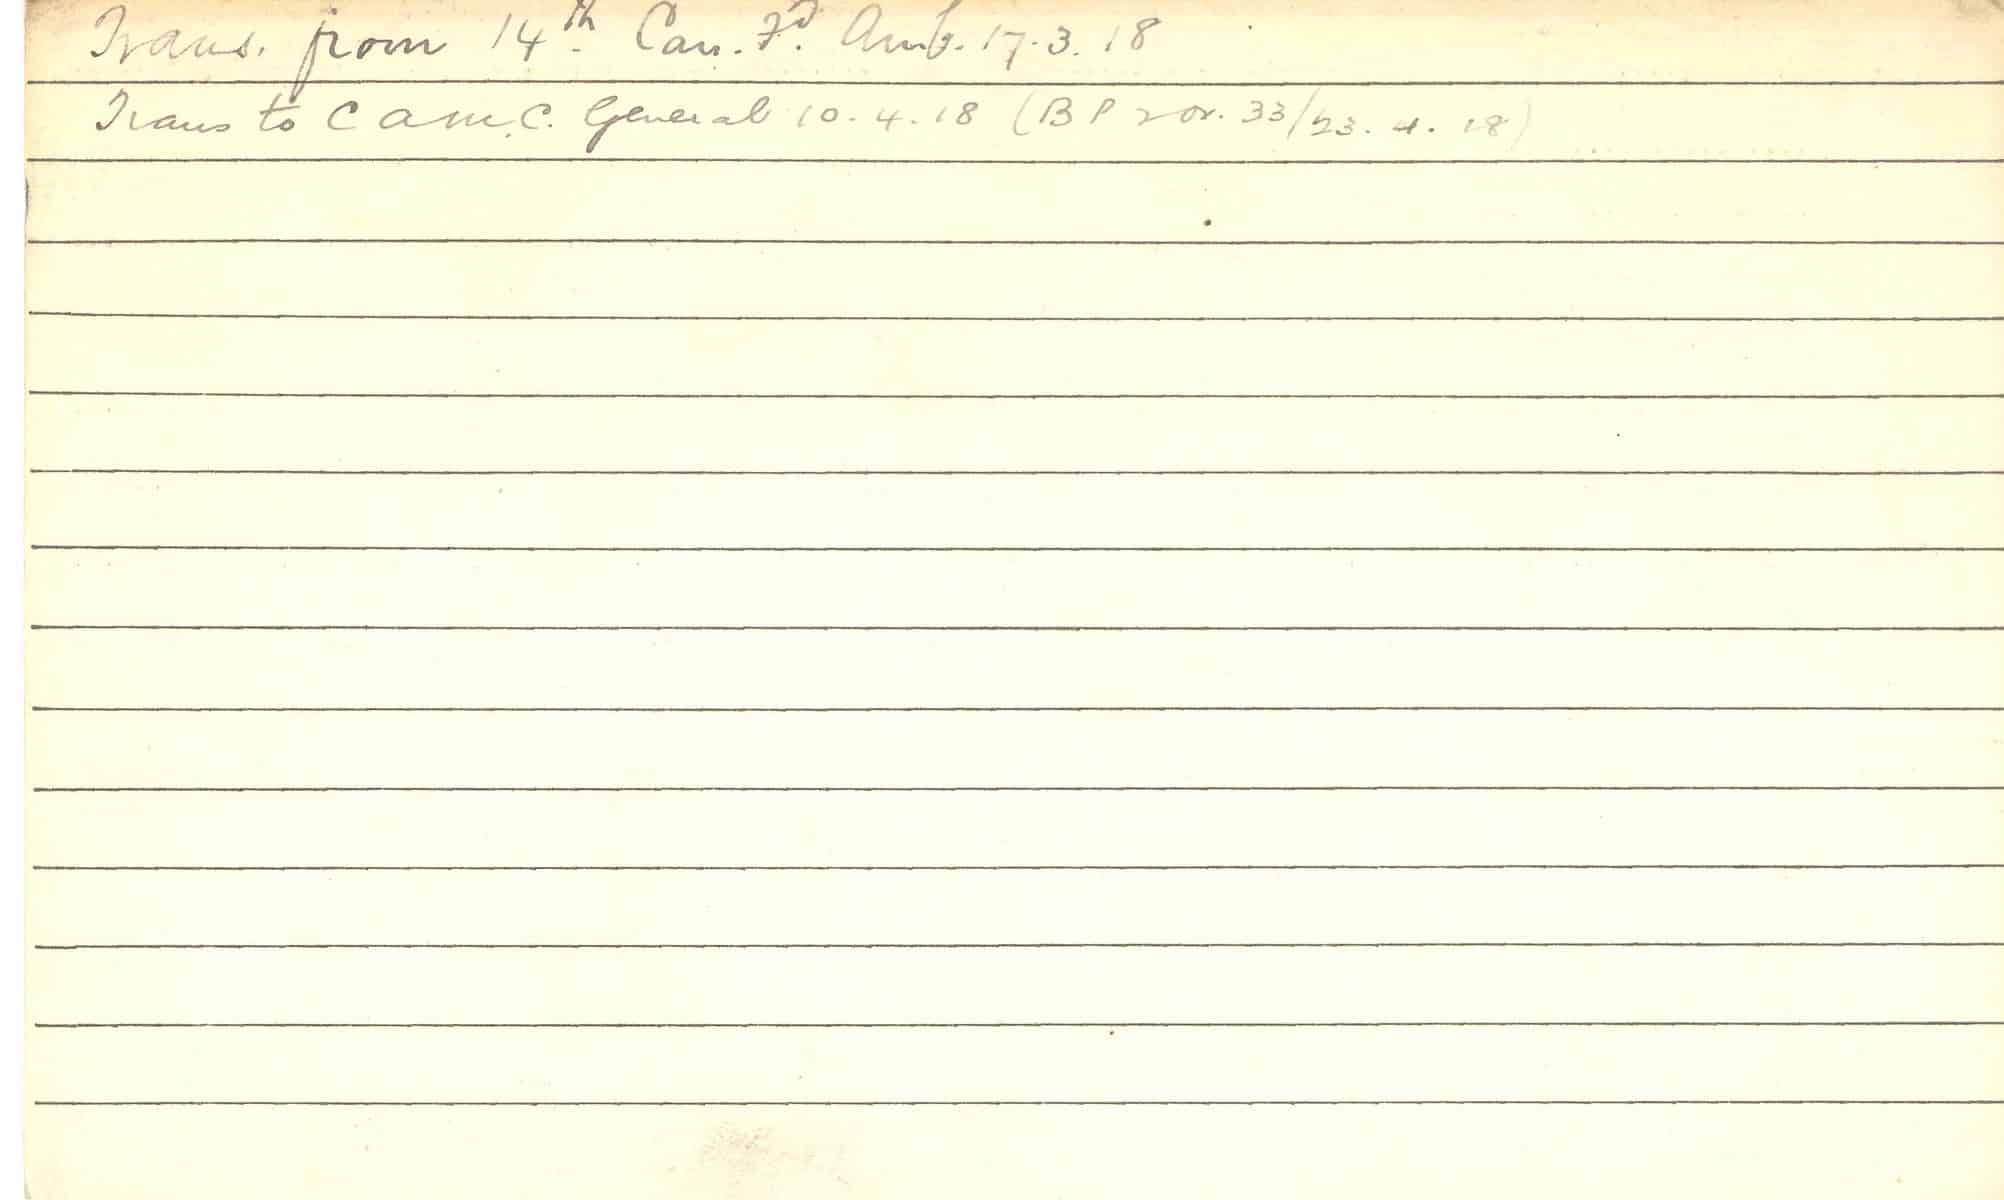 Trans. from 14th. Can. Fd. Amb. 17.3.18
Trans to C A M.C. General 10.4.18 (B P 33/23.4.18)